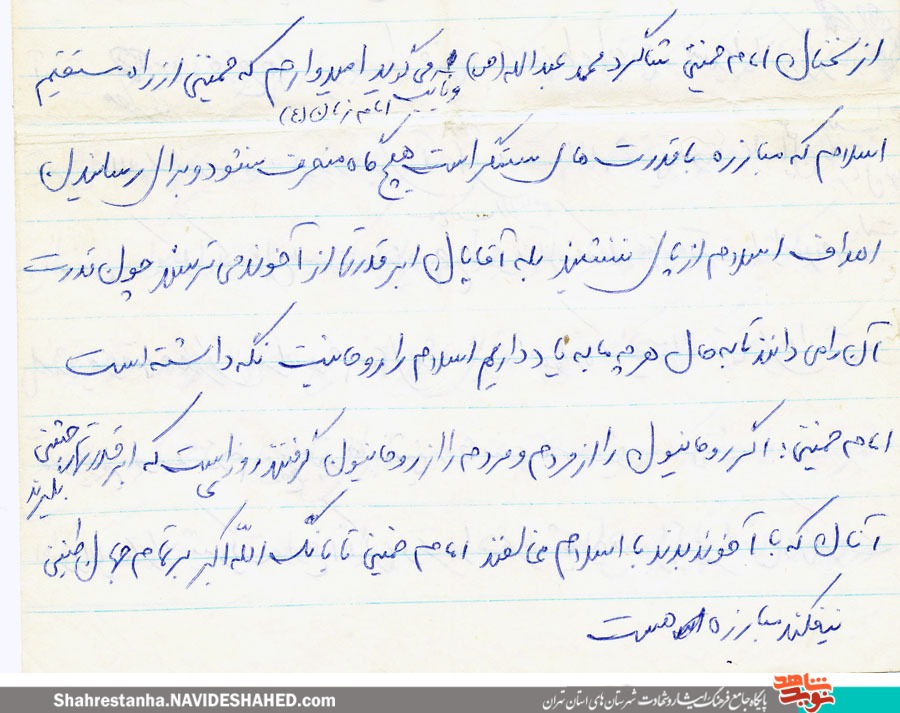 از سخنان امام خمینی شاگرد محمد عبدالله (ص) که می گوید امیدوارم که خمینی از راه مستقیم
و نایب امام زمان (ع)
اسلام که مبارزه با قدرت های ستمگر است هیچ گاه منحرف نشود و برای رسانیدن
اهداف اسلام از پای ننشیند بله آقایان ابرقدرتها از آخوند می ترسند چون قدرت
آن را می دانند تا به حال هر چه ما به یاد داریم اسلام را روحانیت نگه داشته است
امام خمینی: اگر روحانیون را از مردم و مردم را از روحانیون گرفتند روزی است که ابرقدرتها جشن
بگیرند
آنان که با آخوند بدند با اسلام مخالفند امام خمینی تا بانگ الله اکبر بر تمام جهان طنین
نیفکند مبارزه هست
Shahrestanha.NAVIDESHAHED.com
پایگاه جامع فرهنگ ایثار و شهادت شهرستان های استان تهران
نوید شاهد